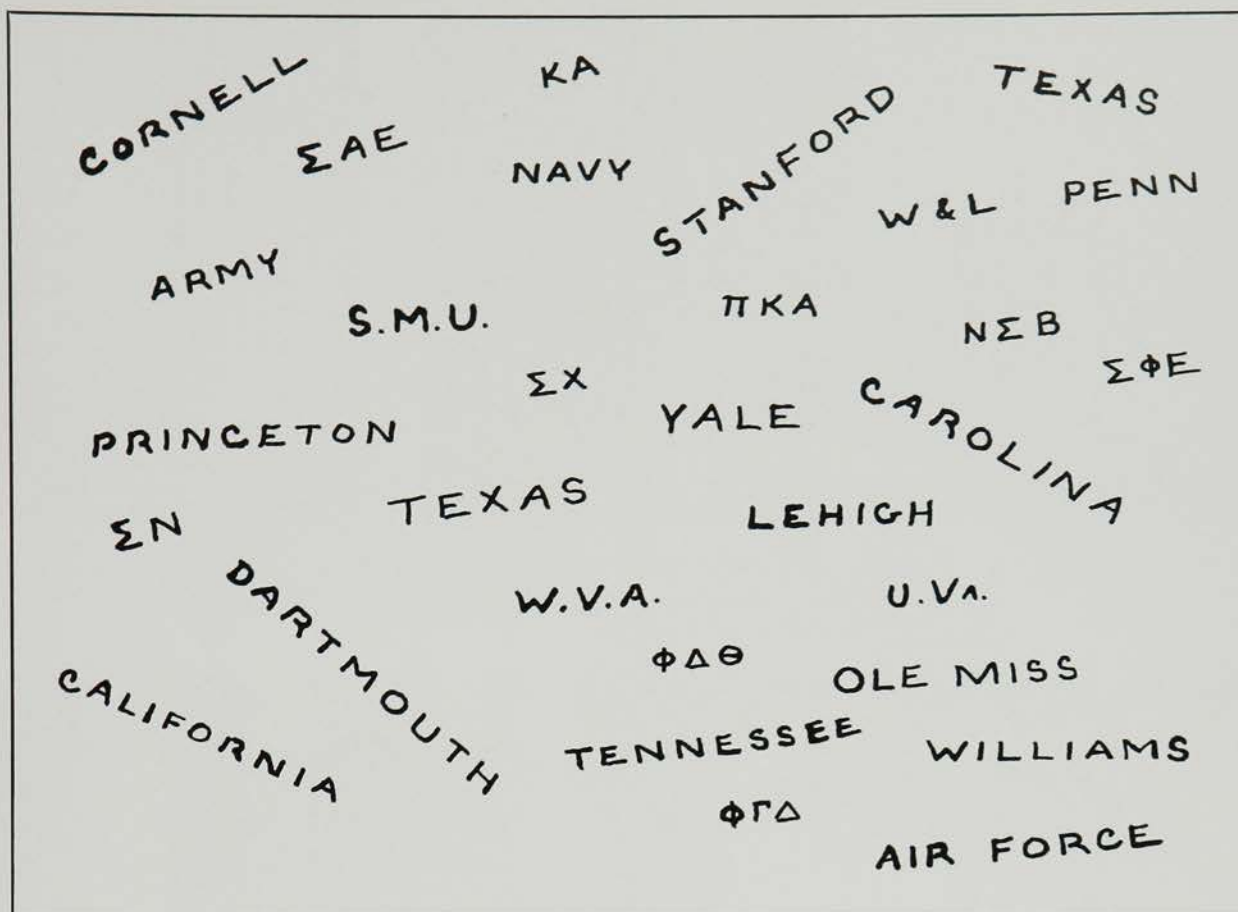 CORNELL
KA
TEXAS
ΣAE
NAVY
STANFORD
W & L
PENN
ARMY
S.M.U.
ΠKA
NΣB
ΣΦE
ΣX
PRINCETON
YALE
CAROLINA
ΣN
TEXAS
LEHIGH
DARTMOUTH
W.V.A.
U.VA.
ΦΔΘ
OLE MISS
CALIFORNIA
TENNESSEE
WILLIAMS
ΦΓΔ
AIR FORCE